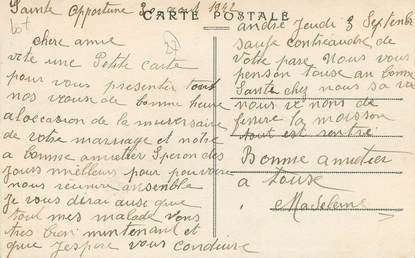 Sainte Opportune 30 aout 1942
CARTE POSTALE
cher amie
vite une Petite carte
pour vous présenter tout
nos veux de bonne heure
a locasion de la nniversaire
de votre marriage et notre
a bonne amitier Speron des
jours meilleurs pour pouvoir
nous reunire ensemble
Je vous dirai aussi que
tout mes malade vons
tres bien mintenant et
que j'espere vous conduire
andre Jeudi 3 Septenbre
sauf contreordre de
votre pare Nous vous
penson touse au bonne
Santé chez nous sa va
nous ve nons de
finire la moisson
tout est rentre
Bonne amitier
a touse
Madeleine